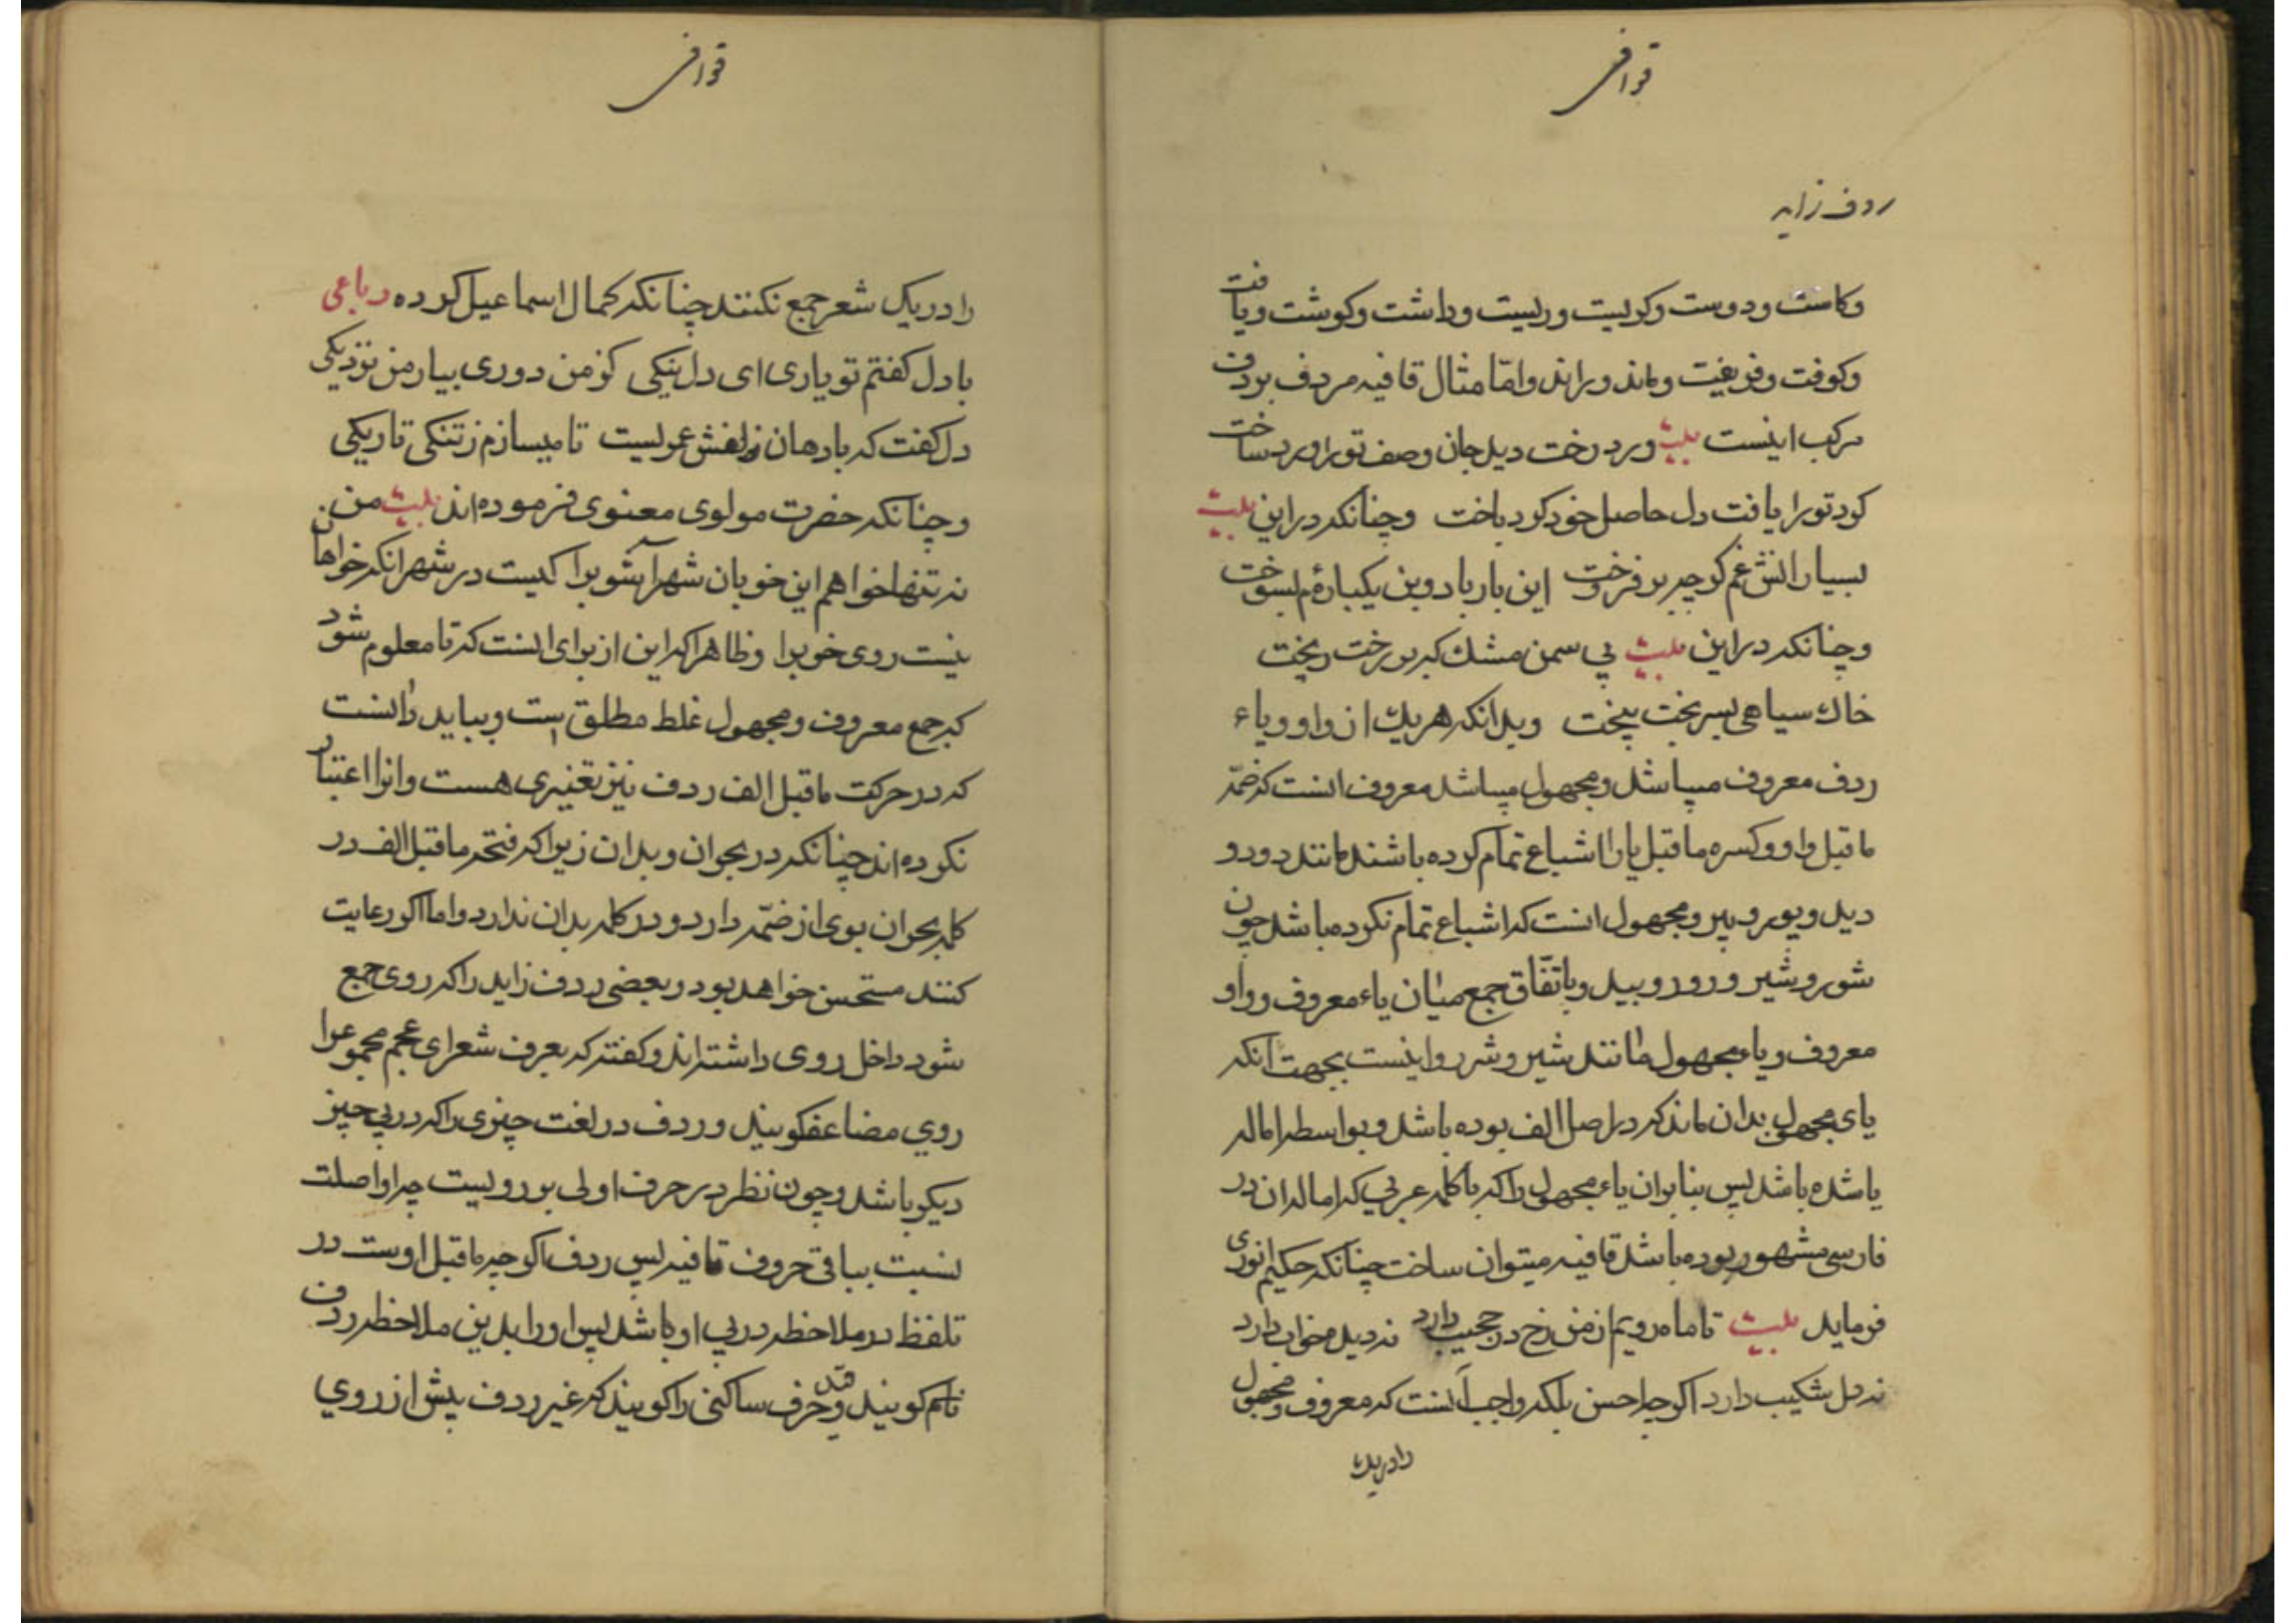 قوافی
ردف زاید
وکاست ودوست وکریست وریست وداشت وکوشت ویافت
وکوفت وفریفت وماند وراند وامّا مثال قافیه مردف بردف
مرکب اینست بیت ورد رخت دید جان وصف تورا ورد ساخت
کرد تورا یافت دل حاصل خود کرد باخت وچنانکه دراین بیت
بسیار اتش غم کرچه بر فروخت این بار باد وین یکباره‌ٔم بسوخت
وچنانکه دراین بیت پی سمن مشک که بر رخت ریخت
خاک سیاهی بسر بخت بیخت وبدانکه هریک از واو ویاء
ردف معروف میباشد ومجهول میباشد معروف انست که ضمّه
ماقبل واو وکسره ماقبل یا را اشباع تمام کرده باشند مانند دور و
دید وپور وپیر ومجهول انست که اشباع تمام نکرده باشد چون
شور وشیر و روز وبید وباتّفاق جمع میان یاء معروف وواو
معروف ویاء مجهول مانند شیر وشر روا نیست بجهت انکه
یای مجهول بدان ماند که دراصل الف بوده باشد وبواسطه اماله
یا شده باشد پس بنابران یاء مجهول را که با کلمه عربی که اماله ان در
فارسی مشهور بوده باشد قافیه میتوان ساخت چنانکه حکیم انوری
فرماید بیت تا ماه رویم از من رخ در حجیب دارد نه دیده خواب دارد
نه دل شکیب دارد اکرچه احسن بلکه واجب آنست که معروف ومجهول
رادریک
قوافی
را دریک شعر جمع نکنند چنانکه کمال اسماعیل کرده رباعی
با دل کفتم تو یاری ای دل نیکی کز من دوری بیار من نزدیکی
دل کفت که با دهان زلفش عمریست تا میسازم زتنکی تاریکی
وچنانکه حضرت مولوی معنوی فرموده‌اند بیت من
نه تنها خواهم این خوبان شهرآشوبرا کیست در شهر انکه خواهان
نیست روی خوبرا وظاهرا که این از برای انست که تا معلوم شود
که جمع معروف ومجهول غلط مطلق است وبباید دانست
که در حرکت ماقبل الف ردف نیز تغییری هست وانرا اعتبار
نکرده‌اند چنانکه در بحران وبدان زیرا که فتحه ماقبل الف در
کلمه بحران بوی از ضمّه دارد ودر کلمه بدان ندارد واما اکر رعایت
کنند مستحسن خواهد بود وبعضی ردف زاید را که روی جمع
شود داخل روی داشته‌اند وکفته که بعرف شعرای عجم مجموعرا
روي مضاعف کویند وردف در لغت چیزی را که در پی چیز
دیکر باشد وچون نظر در حرف اولی بر رویست چه او اصلت
نسبت بباقی حروف قافیه پس ردف اکرچه ماقبل اوست در
تلفظ در ملاحظه در پی او باشد پس اورا بدین ملاحظه ردف
نام کویند وقید حرف ساکنی را کویند که غیر ردف پیش از روي